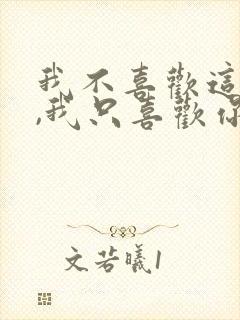 我不喜歡這
,我只喜歡你
文若曦1